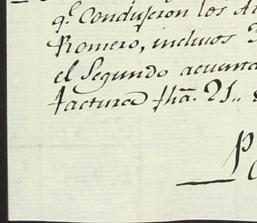 q.e Condujeron los
Romero, inclusos
el Segundo
factura fha. 21..
P